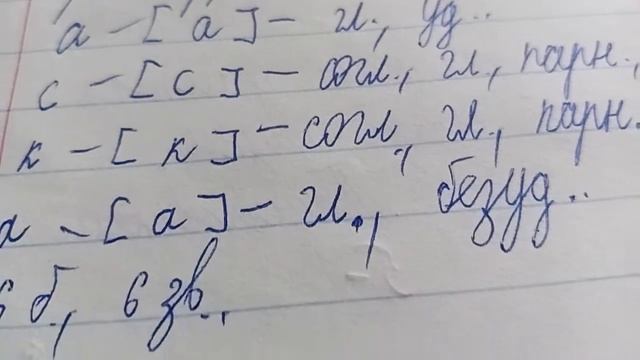 а – [ а́ ] – гл., уд..
с – [ с ] – согл., гл., парн.,
к – [ к ] – согл., гл., парн.
а – [ а ] – гл., безуд..
6 б., 6 зв.,